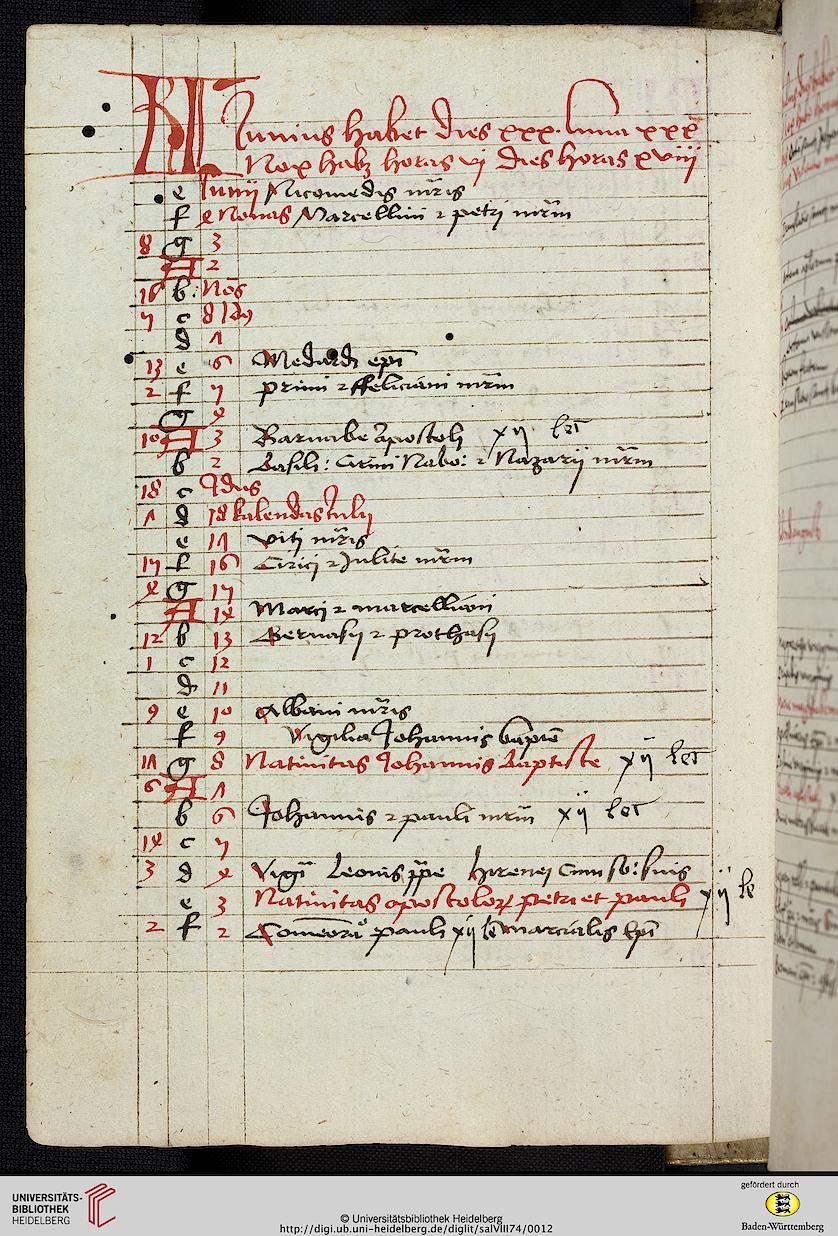 KL Junius habet dies xxx. luna xxx
Nox habz horas vj dies horas xviij
e Junij Nicomedis mris
f 4 Nonas Marcellini ⁊ petri mrm
8 g 3
A 2
16 b. Nos
7 c 8 Idus
d Λ
13 e 6 Medardi epi
2 f 7 primi ⁊ ffeliciani mrm
g 4
10 A 3 Barnabe apostoli xij let
b 2 Basili: Cirini Nabo: ⁊ Nazarij mrm
18 c Idus
Λ d 18 kalendas Julij
e 1Λ viti mris
17 f 16 Cirici ⁊ Julite mrm
4 g 17
A 14 Marci ⁊ marcelliani
12 b 13 Geruasij ⁊ prothasij
1 c 12
d 11
9 e 10 Albani mris
f 9 Vigilia Johannis bapte
1Λ g 8 Natiuitas Johannis baptiste xij let
6 A Λ
b 6 Johannis ⁊ pauli mrm xij let
14 c 7
3 d 4 Vigi Leonis ppe hirenei cum so: suis
e 3 Natiuitas apostolorꝝ petri et pauli xij le
2 f 2 Comeora pauli xij le marcialis Epi
UNIVERSITÄTS-
BIBLIOTHEK
HEIDELBERG
© Universitätsbibliothek Heidelberg
http://digi.ub.uni-heidelberg.de/diglit/salVIII74/0012
gefördert durch
Baden-Württemberg